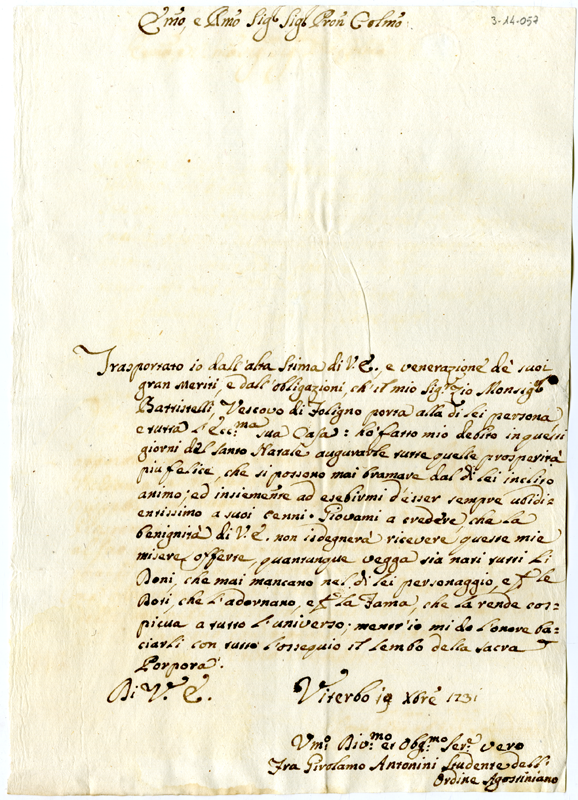 3-14-057
Em̃o, e Rm̃o Sig.r Sig.r Pron̄ Colm̃o:
Trasportato io dall'alta stima di V.E. e venerazione de' suoi
gran Meriti, e dall'obligazioni, ch'il mio Sig.r Zio Monsig.r
Battistelli Vescovo di Foligno porta alla di lei persona
e tutta l'Ecc.ma sua Casa: hò fatto mio debito in questi
giorni del Santo Natale augurarle tutte quelle prosperità
piu felice, che si possono mai bramare dal di lei inclito
animo; ed insiemente ad esebirmi d'esser sempre ubidi=
entissimo a suoi cenni. Giovami a credere che la
benignità di V.E. non isdegnerà ricevere queste mie
misere offerte, quantunque vegga sia nati tutti li
Doni, che mai mancano nel di lei personaggio, e p le
Doti, che l'adornano, e p la Fama, che la rende cos=
picua a tutto l'universo; mentr'io mi dò l'onore ba=
ciarli con tutto l'ossequio il lembo della Sacra
Porpora.
Di V.E. Viterbo 19 Xbre 1731
Vm.o Div.mo et Obg.mo Ser.e vero
Fra Girolamo Antonini Studente dell'
Ordine Agostiniano